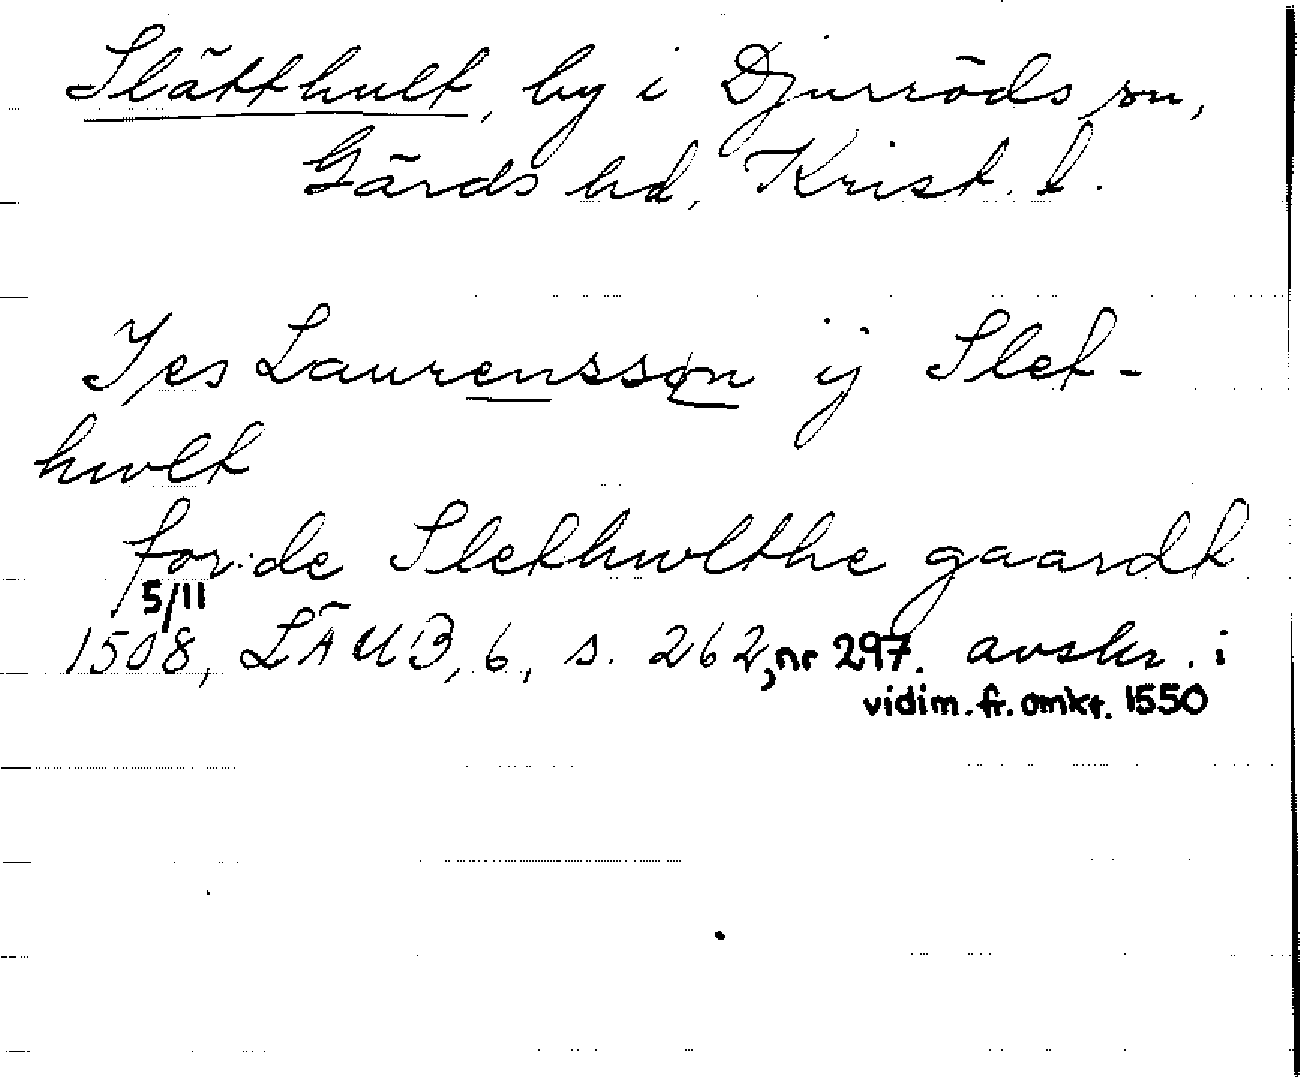 Slätthult, by i Djurröds sn,
Gärds hd, Krist. l.
Jes Laurensson ij Slet-
hwlt
for:de Slethwlthe gaardt
5/11
1508, LÄUB, 6, s. 262, nr 297. avskr. i
vidim. fr. omkr. 1550